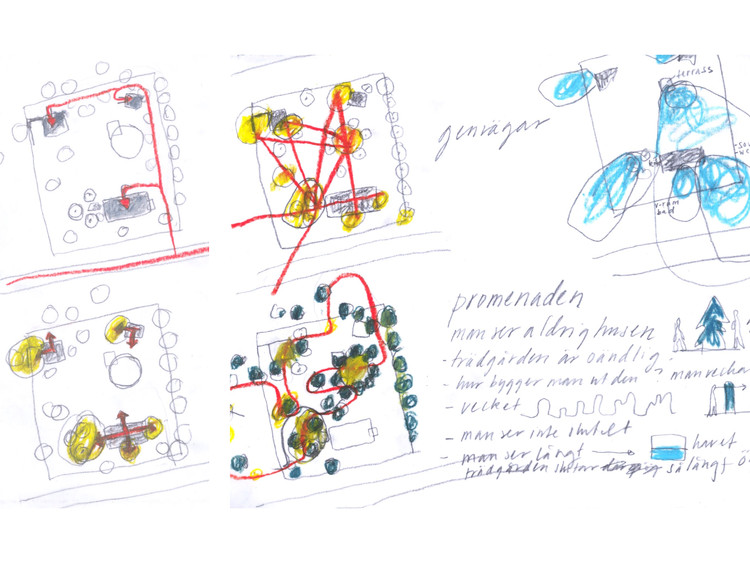 genvägar
terrass
promenaden
man ser aldrig husen
- trädgården är oändlig -
- hur bygger man ut den?
man vecka
- vecket
- man ser inte slutet
- man ser långt
havet
trädgården slutar så långt